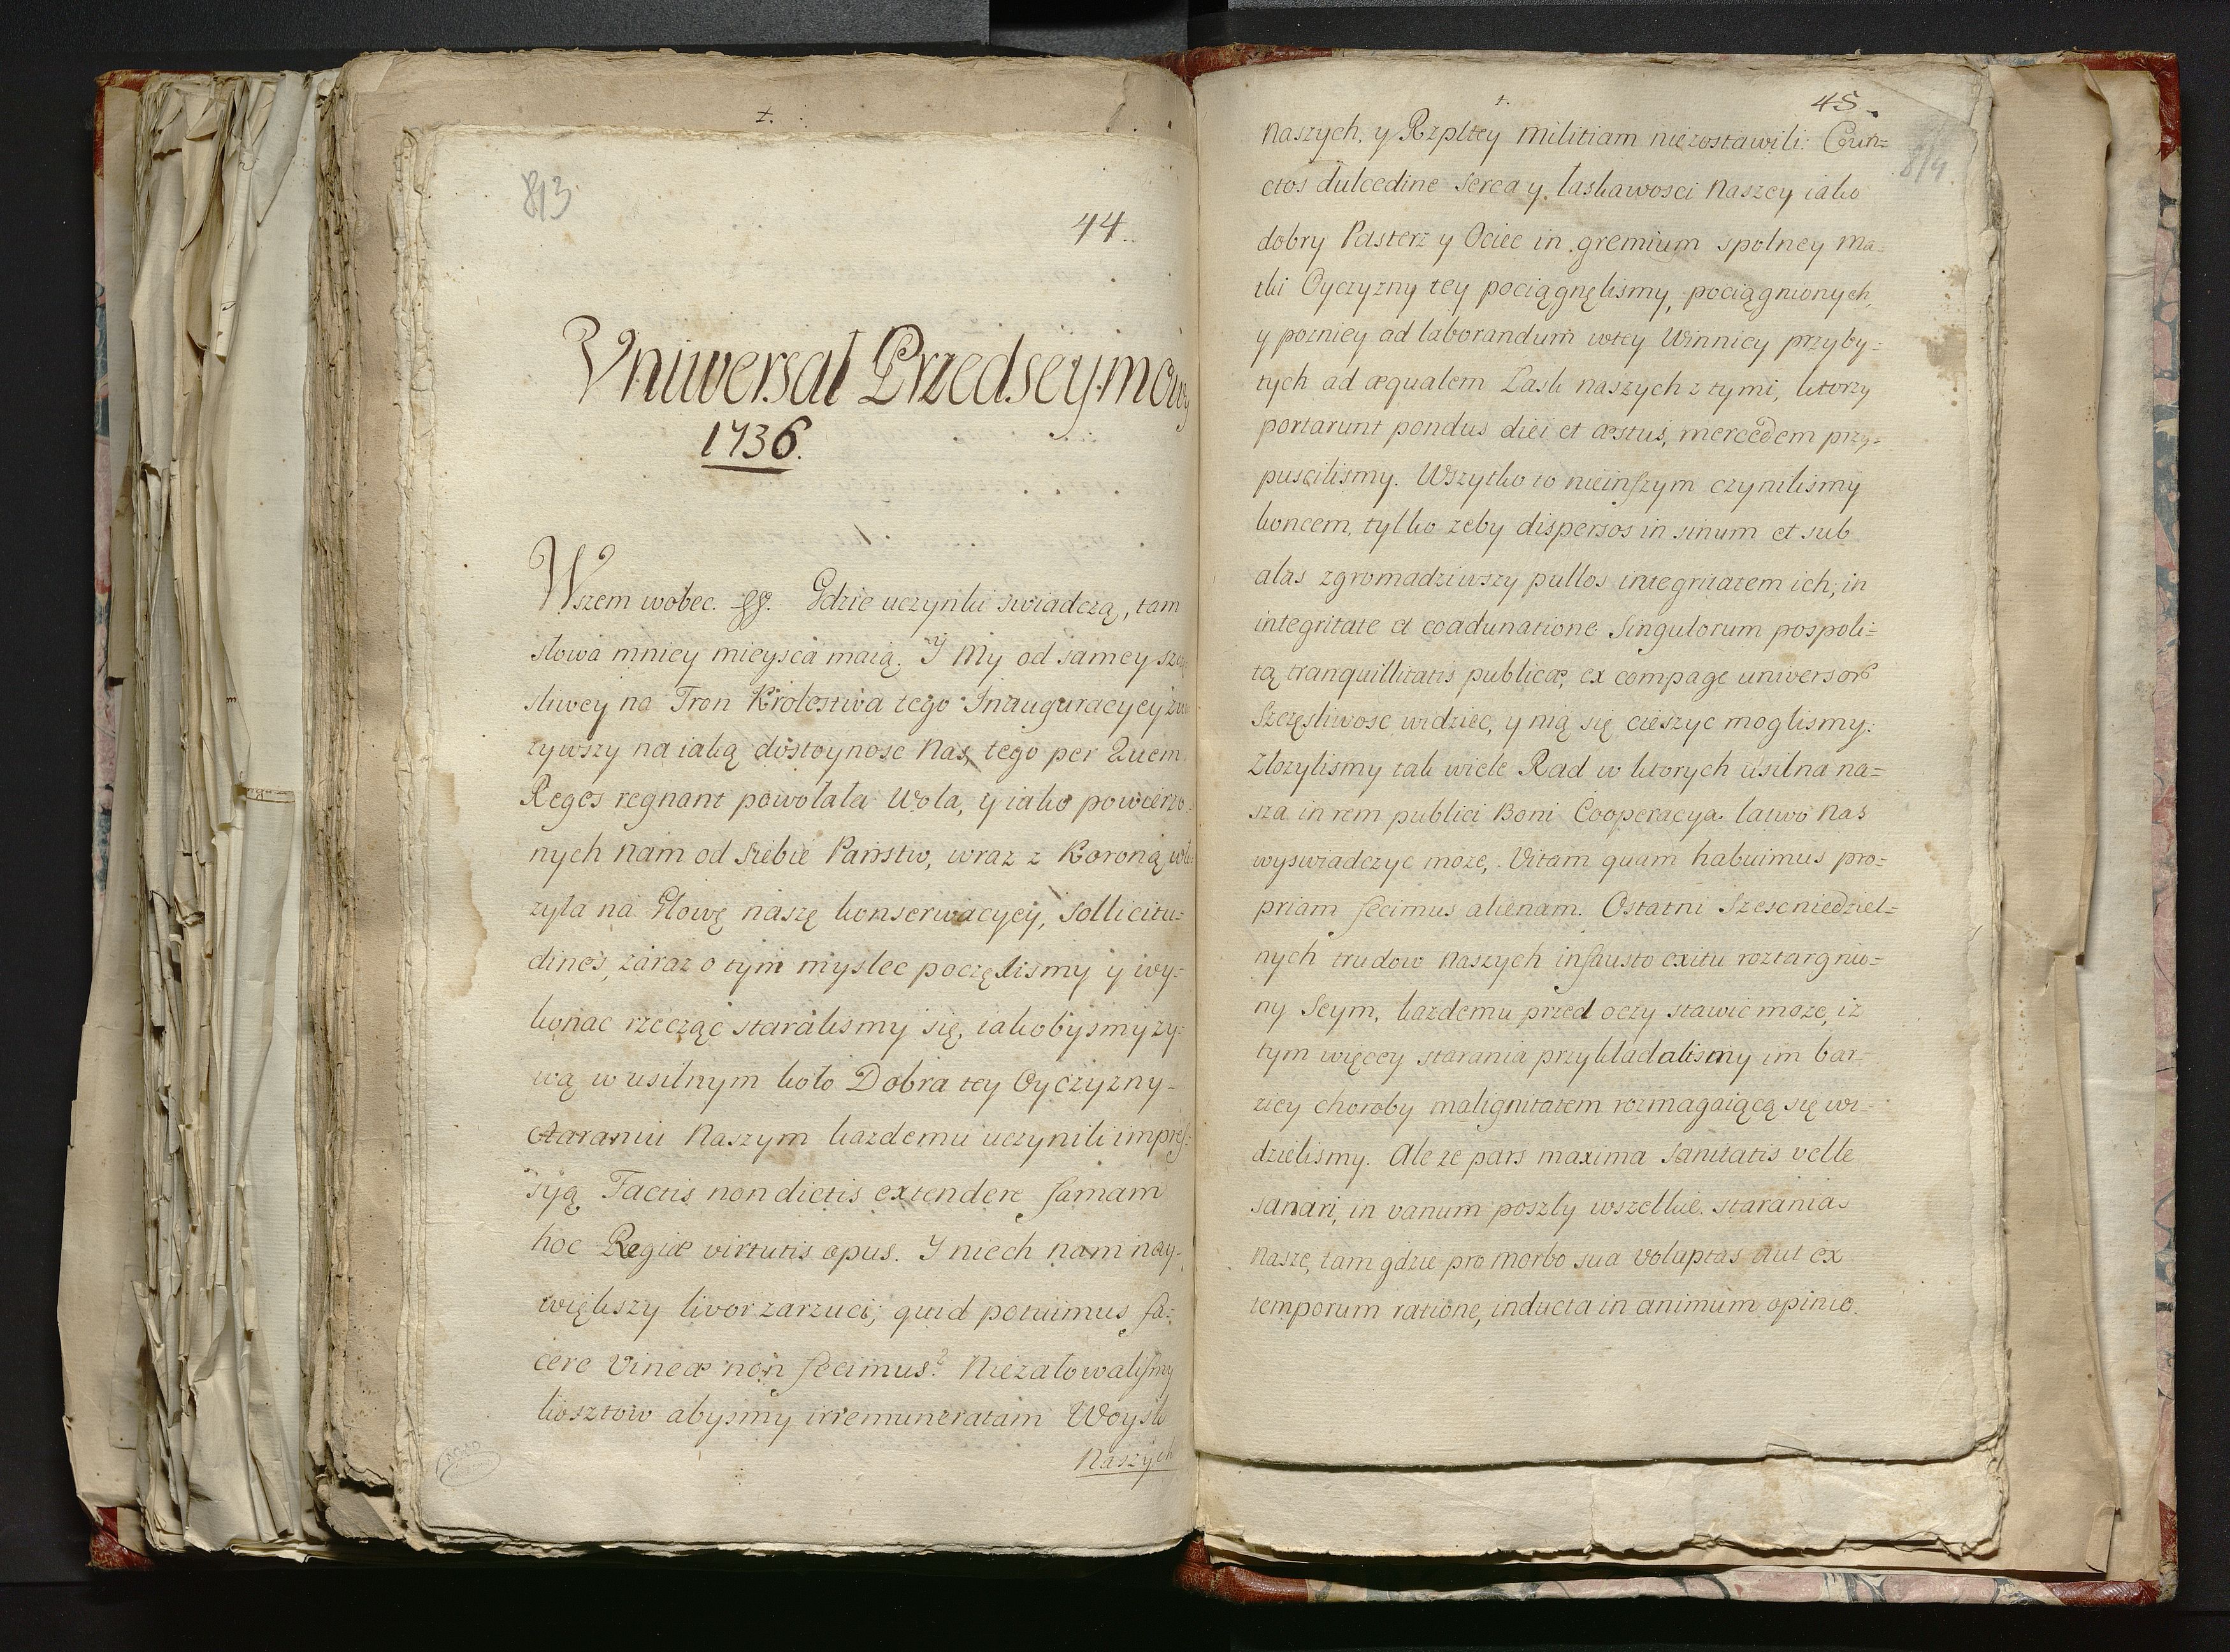 ł.
813
44.
Vniwersał Przedseymowy
1736.
Wszem wobec. &&. Gdzie uczynki swiadczą, tam
słowa mniey mieysca maią. Y My od samey
sliwey na Tron Krolestwa tego Inauguracyey
zywszy na iaką dostoynosc Nas, tego per Quem
Reges regnant powołała Wola, y iako powierzo
nych Nam od siebie Państw, wraz z Koroną
zyła na Głowę naszę konserwacyey, sollicitu=
dines, zaraz o tym myslec poczęlismy y wy=
konac rzecząc staralismy się, iakobysmy zy=
wą w usilnym koło Dobra tey Oyczyzny-
staraniu Naszym kazdemu uczynili impres=
syą Factis non dictis extendere famam
hoc Regiæ virtutis opus. Y niech nam nay-
większy livor zarzuci; quid potuimus fa=
cere Vineæ non fecimus? Niezałowalismy
kosztow abysmy irremuneratam Woysk
Naszych
45.
814
Naszych, y Rzpltey militiam niezostawili: Cun=
ctos dulcedine serca y łaskawosci Naszey iako
dobry Pasterz y Ociec in gremium spolney Ma=
tki Oyczyzny tey pociągnęlismy, pociągnionych,
y pozniey ad laborandum wtey Winnicy przyby=
tych ad æqualem Łask naszych z tymi, ktorzy
portarunt pondus diei et æstus, mercedem przy=
puscilismy. Wszytko to nieinszym czynilismy
koncem, tylko zeby dispersos in sinum et sub
alas zgromadziwszy pullos integritatem ich, in
integritate et coadunatione Singulorum pospoli=
tą tranquillitatis publicæ, ex compage universor
Szczęsliwosc widziec, y nią się cieszyc moglismy.
Złozylismy tak wiele Rad w ktorych usilna na=
sza in rem publici Boni Cooperacya łatwo Nas
wyswiadczyc moze, Vitam quam habuimus pro=
priam fecimus alienam. Ostatni Szescniedziel=
nych trudow Naszych infausto exitu roztargnio=
ny Seym, kazdemu przed oczy stawic moze, iz
tym więcey starania przykładalismy im bar=
ziey choroby malignitatem rozmagaiącą się wi=
dzielismy. Ale ze pars maxima Sanitatis velle
sanari, in vanum poszły wszelkie starania
nasze, tam gdzie pro morbo sua voluptas aut ex
temporum ratione, inducta in animum opinio.